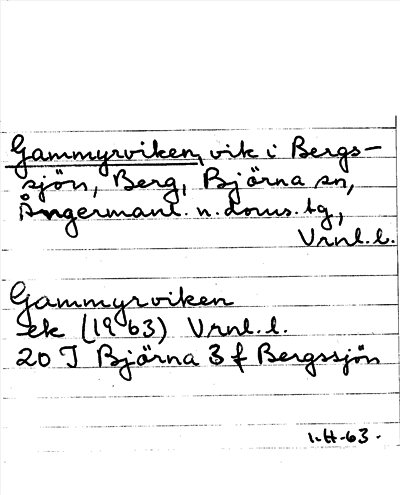 Gammyrviken, vik i Bergs-
sjön, Berg, Björna sn,
Ångermanl. n. doms. tg,
Vrnl. l.
Gammyrviken
ek (1963) Vrnl. l.
20 J Björna 3 f Bergssjön
1.H-63.